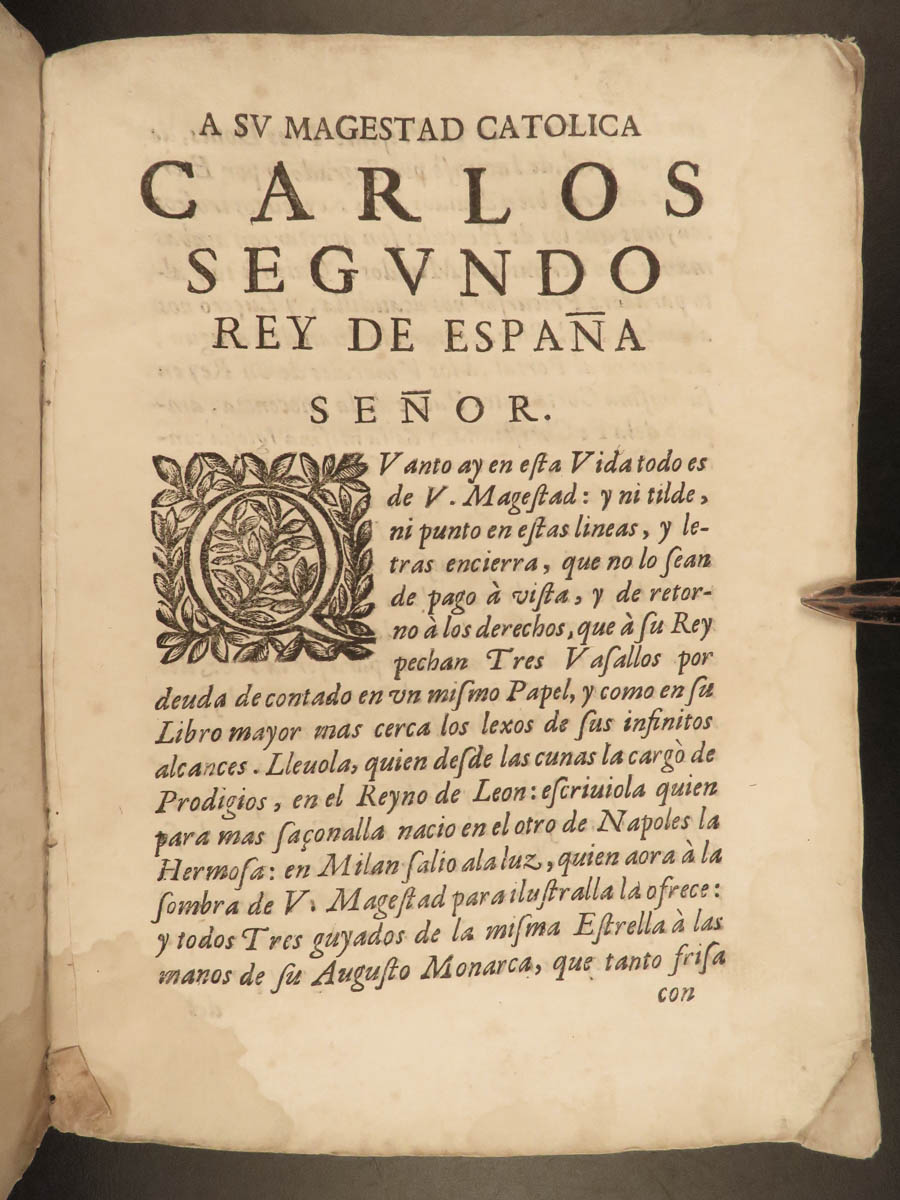 A SV MAGESTAD CATOLICA
CARLOS
SEGVNDO
REY DE ESPAÑA
SEÑOR.
QVanto ay en eſta Vida todo es
de V. Mageſtad: y ni tilde,
ni punto en eſtas lineas, y le-
tras encierra, que no lo ſean
de pago à viſta, y de retor-
no à los derechos, que à ſu Rey
pechan Tres Vaſallos por
deuda de contado en vn miſmo Papel, y como en ſu
Libro mayor mas cerca los lexos de ſus infinitos
alcances. Lleuola, quien deſde las cunas la cargò de
Prodigios, en el Reyno de Leon: eſcriuiola quien
para mas ſaçonalla nacio en el otro de Napoles la
Hermoſa: en Milan ſalio a la luz, quien aora à la
ſombra de V. Mageſtad para iluſtralla là ofrece:
y todos Tres guyados de la miſma Eſtrella à las
manos de ſu Auguſto Monarca, que tanto friſa
con